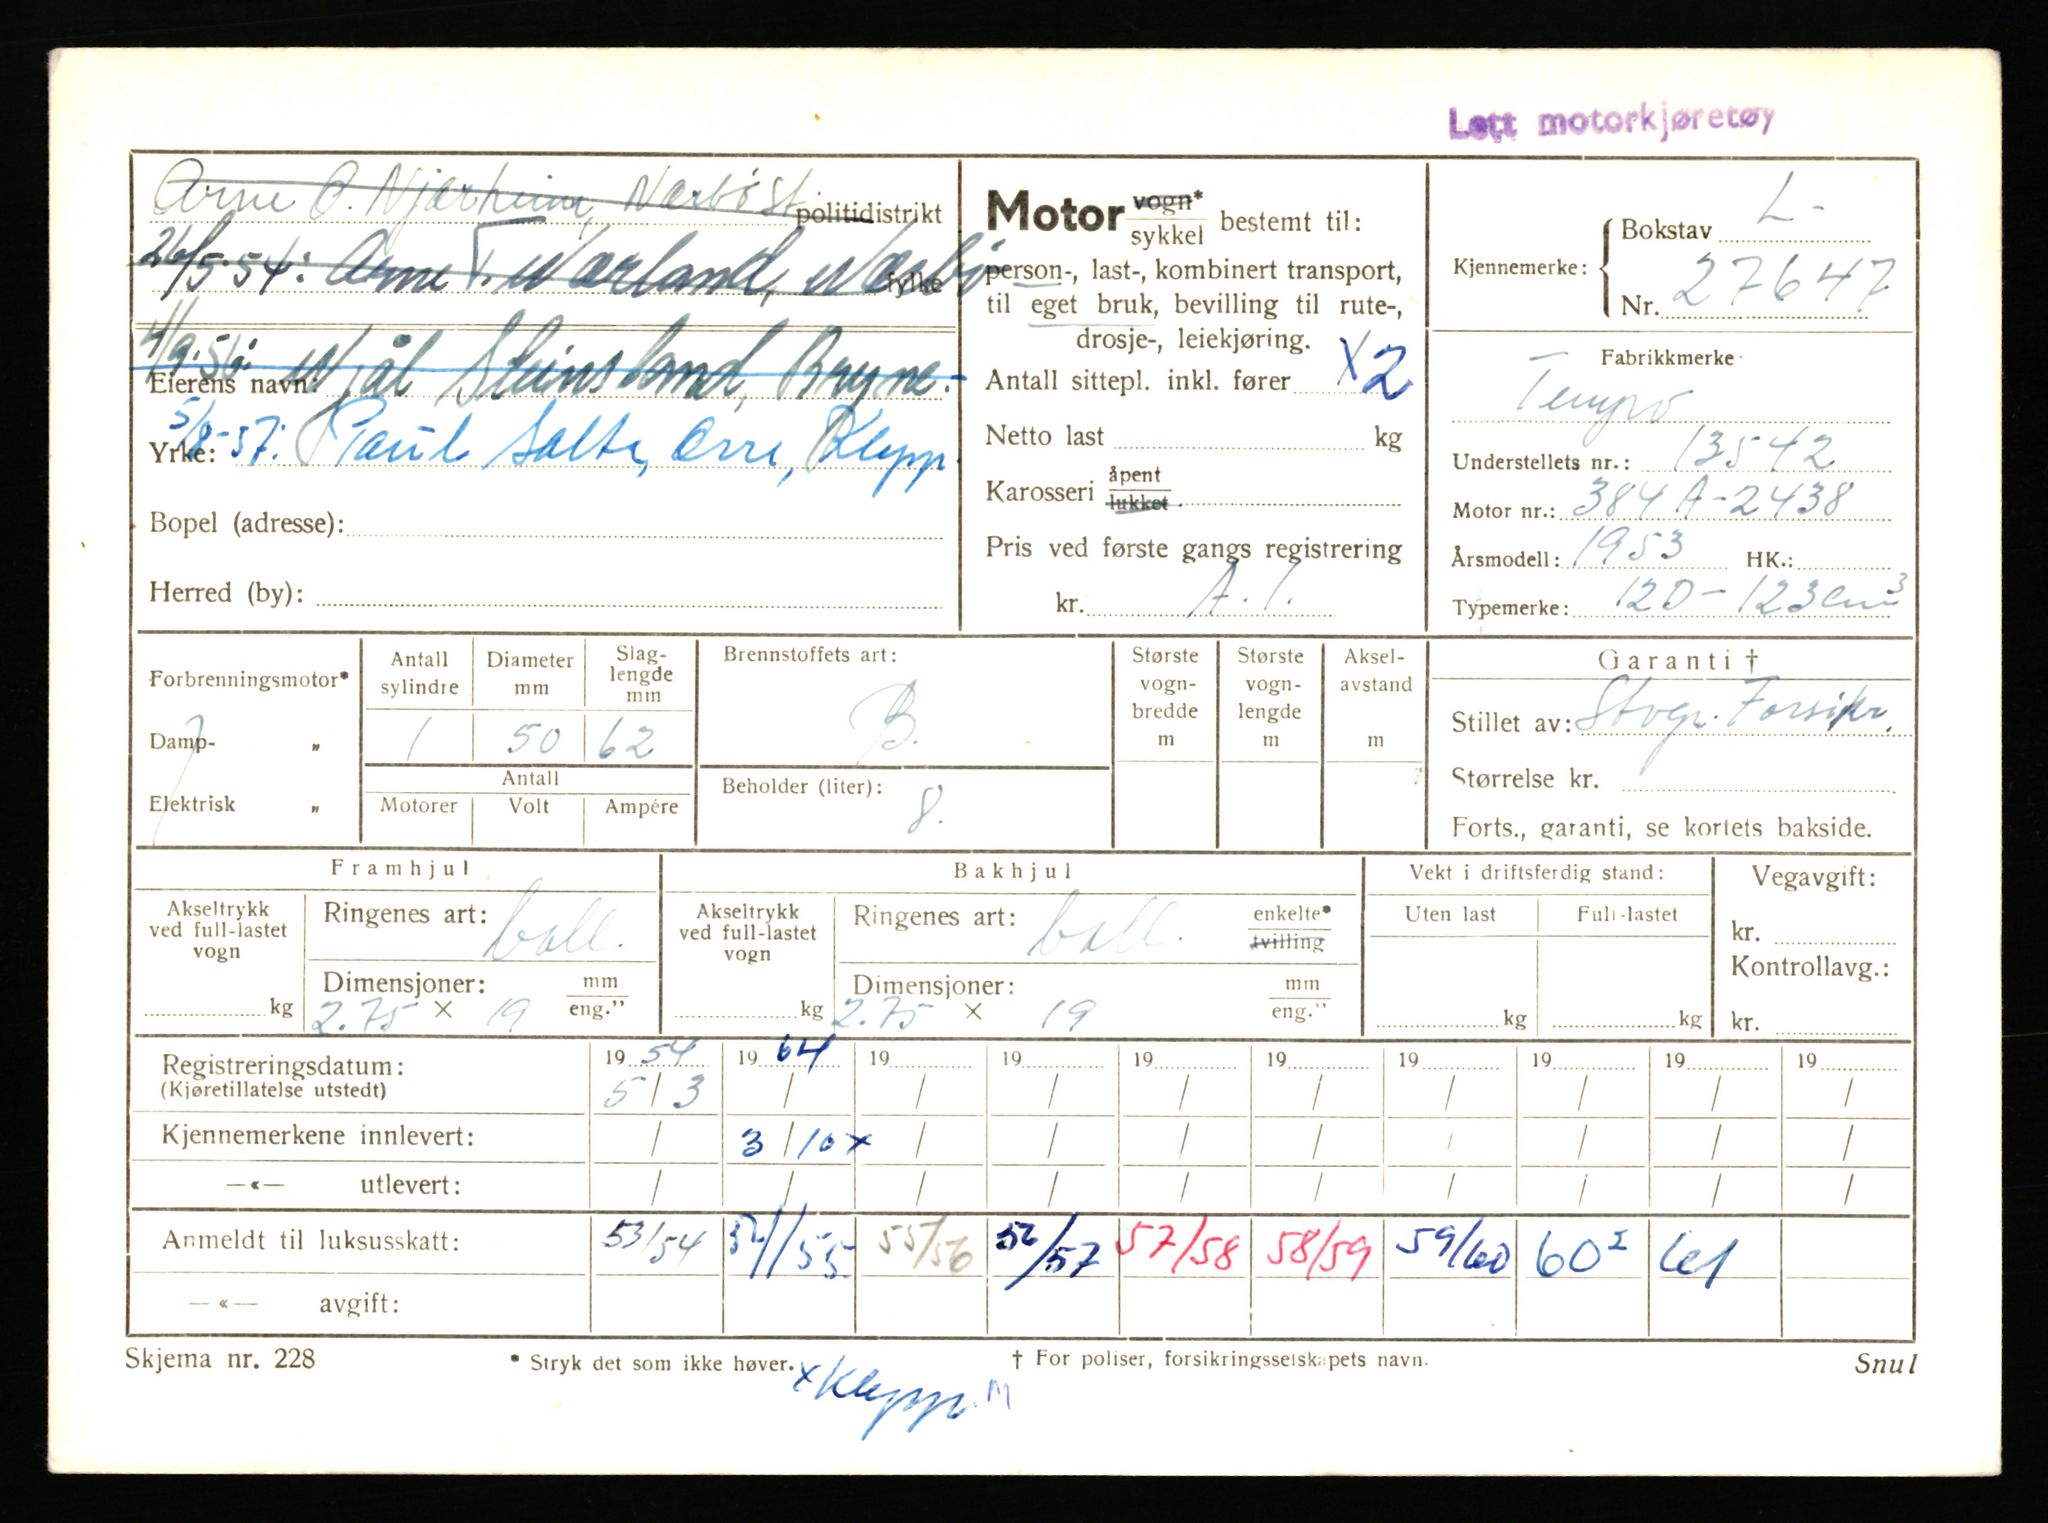 Lett motorkjøretøy
Arne O. Njærheim, Nærbö St. politidistrikt
26/5.54: Arne T. Nærland, Nærbö
fylke
4/9.56: Njål Steinsland, Bryne.-
Eierens navn:
5/8-57: Paul Salte, Orre, Klepp.
Yrke:
Bopel (adresse):
Herred (by):
Motor vogn* sykkel bestemt til:
person-, last-, kombinert transport,
til eget bruk, bevilling til rute-,
drosje-, leiekjøring.
Antall sittepl. inkl. fører X2
Netto last kg
Karosseri åpent lukket
Pris ved første gangs registrering
kr. A.1.
Kjennemerke: Bokstav L-
Nr. 27647
Fabrikkmerke
Tempo
Understellets nr.: 13542
Motor nr.: 384 A-2438
Årsmodell: 1953 HK.:
Typemerke: 120 - 123 cm³
Forbrenningsmotor*
Damp- „
Elektrisk „
Antall sylindre Diameter mm Slaglengde mm
1 50 62
Antall
Motorer Volt Ampére
Brennstoffets art:
B.
Beholder (liter):
8.
Største vognbredde m
Største vognlengde m
Akselavstand m
Garanti †
Stillet av: Stvgr. Forsikr.
Størrelse kr.
Forts., garanti, se kortets bakside.
Framhjul
Akseltrykk ved full-lastet vogn
kg
Ringenes art: ball.
Dimensjoner: mm eng."
2.75 × 19
Bakhjul
Akseltrykk ved full-lastet vogn
kg
Ringenes art: ball. enkelte* tvilling
Dimensjoner: mm eng."
2.75 × 19
Vekt i driftsferdig stand:
Uten last Full-lastet
kg kg
Vegavgift:
kr.
Kontrollavg.:
kr.
Registreringsdatum: 19 54 19 64 19 19 19 19 19 19 19 19
(Kjøretillatelse utstedt) 5/3 / / / / / / / / /
Kjennemerkene innlevert: / 3/10 x / / / / / / / /
—«— utlevert: / / / / / / / / / /
Anmeldt til luksusskatt: 53/54 54/55 55/56 56/57 57/58 58/59 59/60 60² 61
—«— avgift:
Skjema nr. 228 * Stryk det som ikke høver. † For poliser, forsikringsselskapets navn. Snul
x Klepp. M